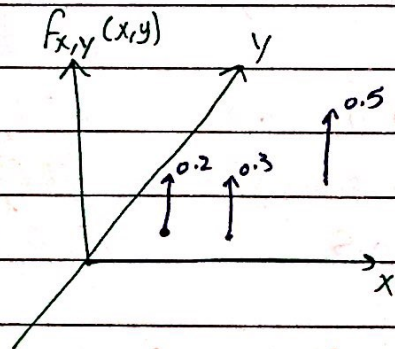 f_{X,Y}(x,y)
y
0.5
0.2
0.3
x